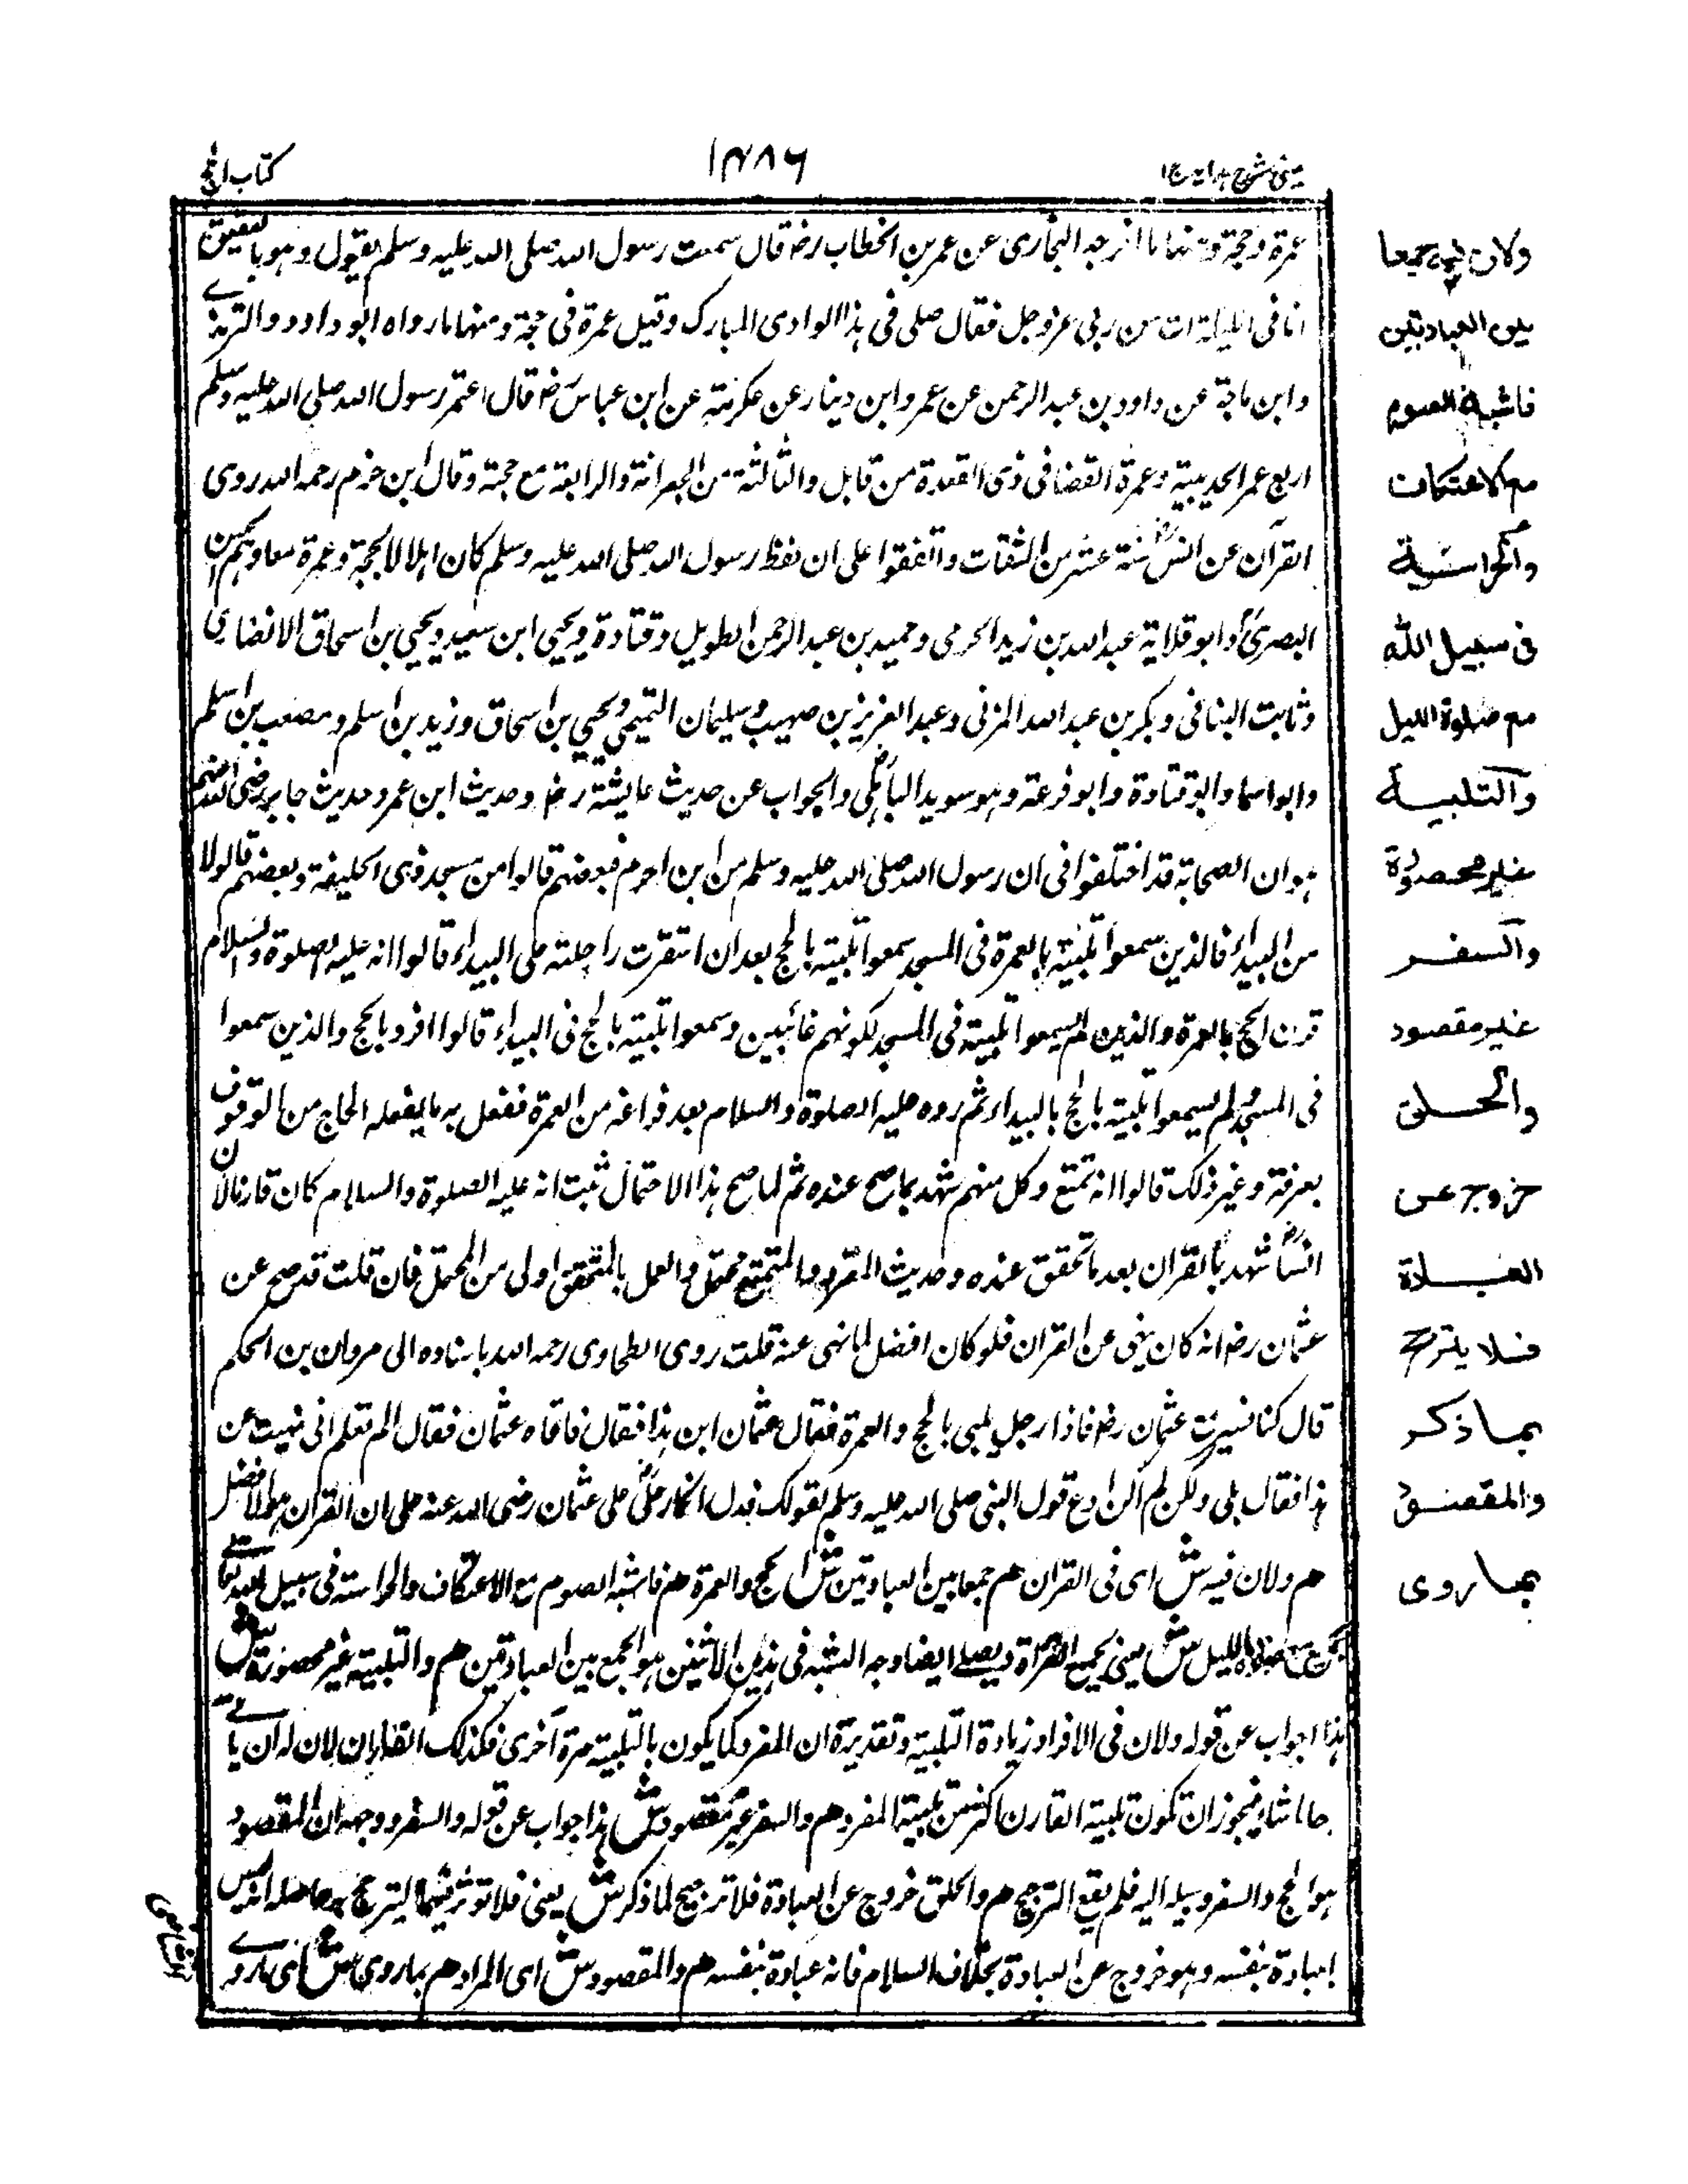 عینی شرح هدایه ج ۱
۱۴۸۶
كتاب الحج
عمرة وحجة ومنها ما اخرجه البخارى عن عمر بن الخطاب رضـ قال سمعت رسول الله صلى الله عليه وسلم يقول وهو بالعقيق
اتانى الليلة ات من ربى عز وجل فقال صلى فى هذا الوادى المبارك وقيل عمرة فى حجة ومنها ما رواه ابو داود والترمذے
وابن ماجة عن داود بن عبد الرحمن عن عمرو ابن دينار عن عكرمة عن ابن عباس رضـ قال اعتمر رسول الله صلى الله عليه وسلم
اربع عمر الحديبية وعمرة القضا فى ذى القعدة من قابل والثالثة من الجعرانة والرابعة مع حجته وقال ابن حزم رحمه الله روى
القرآن عن انس رضـ ستة عشر من الثقات واتفقوا على ان لفظ رسول الله صلى الله عليه وسلم كان اهلالا بحجة وعمرة معا وهم الحسن
البصرى وابو قلابة عبد الله بن زيد الحرمى وحميد بن عبد الرحمن الطويل وقتادة ويحيى ابن سعيد ويحيى بن اسحاق الانصارى
وثابت البنانى وبكر بن عبد الله المزنى وعبد العزيز بن صهيب وسليمان التيمى ويحيى بن اسحاق وزيد بن اسلم ومصعب بن اسلم
وابو اسما وابو قتادة وابو قرعة وهو سويد الباهلى والجواب عن حديث عايشة رضـ وحديث ابن عمر وحديث جابر رضى الله عنهم
هو ان الصحابة قد اختلفوا فى ان رسول الله صلى الله عليه وسلم من اين احرم فبعضهم قالوا من مسجد ذى الحليفة وبعضهم قالوا لا
من البيداء فالذين سمعوا تلبيته بالعمرة فى المسجد سمعوا تلبيته بالحج بعد ان استقرت راحلته على البيداء قالوا انه عليه الصلوة والسلام
قرن الحج بالعمرة والذين لم يسمعوا تلبيته فى المسجد لكونهم غائبين وسمعوا تلبيته بالحج فى البيداء قالوا افرد بالحج والذين سمعوا
فى المسجد ولم يسمعوا تلبيته بالحج بالبيداء ثم روه عليه الصلوة والسلام بعد فراغه من العمرة ففعل به ما يفعله الحاج من الوقوف
بعرفة وغير ذلك قالوا انه تمتع وكل منهم شهد بما صح عنده ثم لما صح هذا الاحتمال ثبت انه عليه الصلوة والسلام كان قارنا لان
انسا رضـ شهد بالقران بعد ما تحقق عنده وحديث المفرد والمتمتع محتمل والعمل بالمتحقق اولى من المحتمل فان قلت قد صح عن
عثمان رضـ انه كان ينهى عن القران فلو كان افضل لما نهى عنه قلت روى الطحاوى رحمه الله باسناده الى مروان بن الحكم
قال كنا نسير مع عثمان رضـ فاذا رجل يلبى بالحج والعمرة فقال عثمان ابن هذا فقال فاتاه عثمان فقال الم تعلم انى نهيت عن
هذا فقال بلى ولكن لم اكن ادع قول النبى صلى الله عليه وسلم لقولك فدل انكار على رضـ على عثمان رضى الله عنه على ان القران هو الافضل
هم ولان فيه ش اى فى القران هم جمعا بين العبادتين ش الحج والعمرة هم فاشبه الصوم مع الاعتكاف والحراسة فى سبيل الله تعالے
مع صلوة الليل ش يعنى يجمع ويصلے ايضا وجه الشبه فى هذين الاثنين هو الجمع بين العبادتين هم والتلبية غير محصورة ش
هذا جواب عن قوله ولان فى الافراد زيادة التلبية وتقديرة ان المفرد كما يكون بالتلبية مرة اخرى فكذلك القارن لان له ان ياتے
بها ما شاء فيجوز ان تكون تلبية القارن اكثر من تلبية المفرد هم والسفر غير مقصود ش هذا جواب عن قوله والسفر ووجهه ان المقصود
هو الحج والسفر وسيلة اليه فلم يقع الترجيح هم والحلق خروج عن العبادة فلا ترجيح لما ذكر ش يعنى فلا تؤثر فيهما الترجيح حاصله انه ليس
بعبادة بنفسه وهو خروج عن العبادة بخلاف السلام فانه عبادة بنفسه هم والمقصود ش اى المراد هم بما روى ش اى ما روے
ولان فيه جمعا
بين العبادتين
فاشبه الصوم
مع الاعتكاف
والحراسة
فى سبيل الله
مع صلوة الليل
والتلبية
غير محصورة
والسفر
غير مقصود
والحلق
خروج عن
العبادة
فلا يترجح
بما ذكر
والمقصود
بما روى